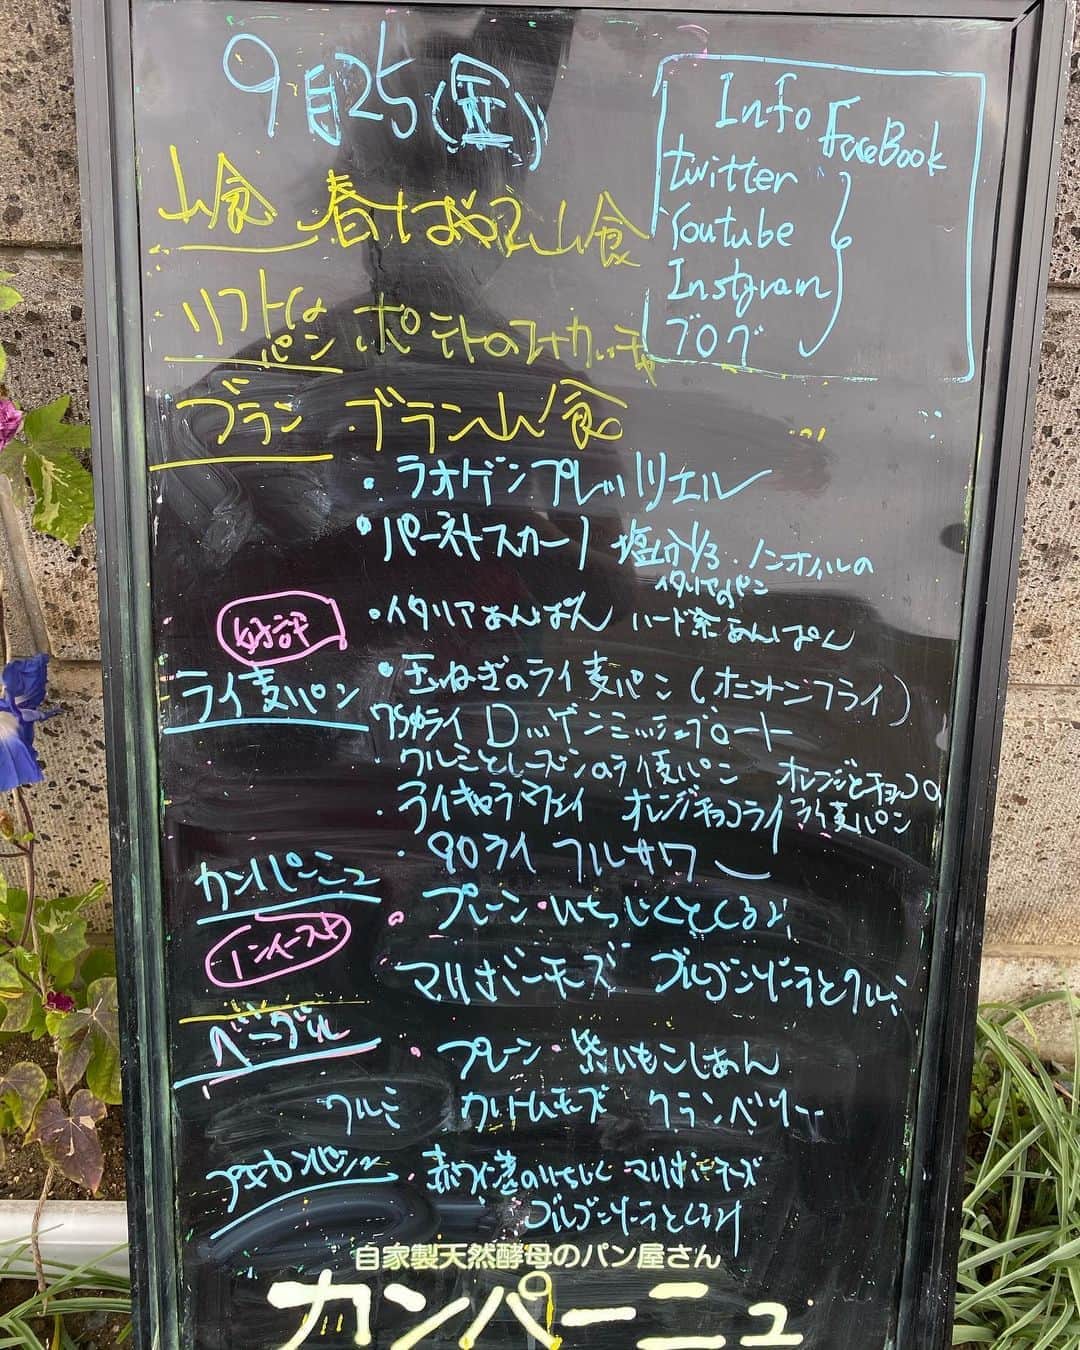 9月25(金)
Info
FaceBook
twitter
Youtube
Instgram
ブログ
山食 春よ 山食
リフトは
パン ポテトのフォカッチャ
ブラン ・ブラン山食
・ラオゲンプレッツェル
・パーネトスカーノ 塩分1/3・ノンオイルの
イタリアのパン
・イタリアあんぱん ハード系あんぱん
好評
ライ麦パン ・玉ねぎのライ麦パン(オニオンフライ)
ライ ロッゲンミッシュブロート
クルミとレーズンのライ麦パン オレンジとチョコの
ライキャラウェイ オレンジチョコライ ライ麦パン
・90ライ フルサワー
カンパーニュ ・プレーン・いちじくとくるみ
マリボーチーズ ゴルゴンゾーラとクルミ
ベーグル ・プレーン・紫いもこしあん
クルミ クリームチーズ クランベリー
プチカンパーニュ ・赤ワイン漬のいちじく マリボーチーズ
ゴルゴンゾーラとくるみ
自家製天然酵母のパン屋さん
カンパーニュ